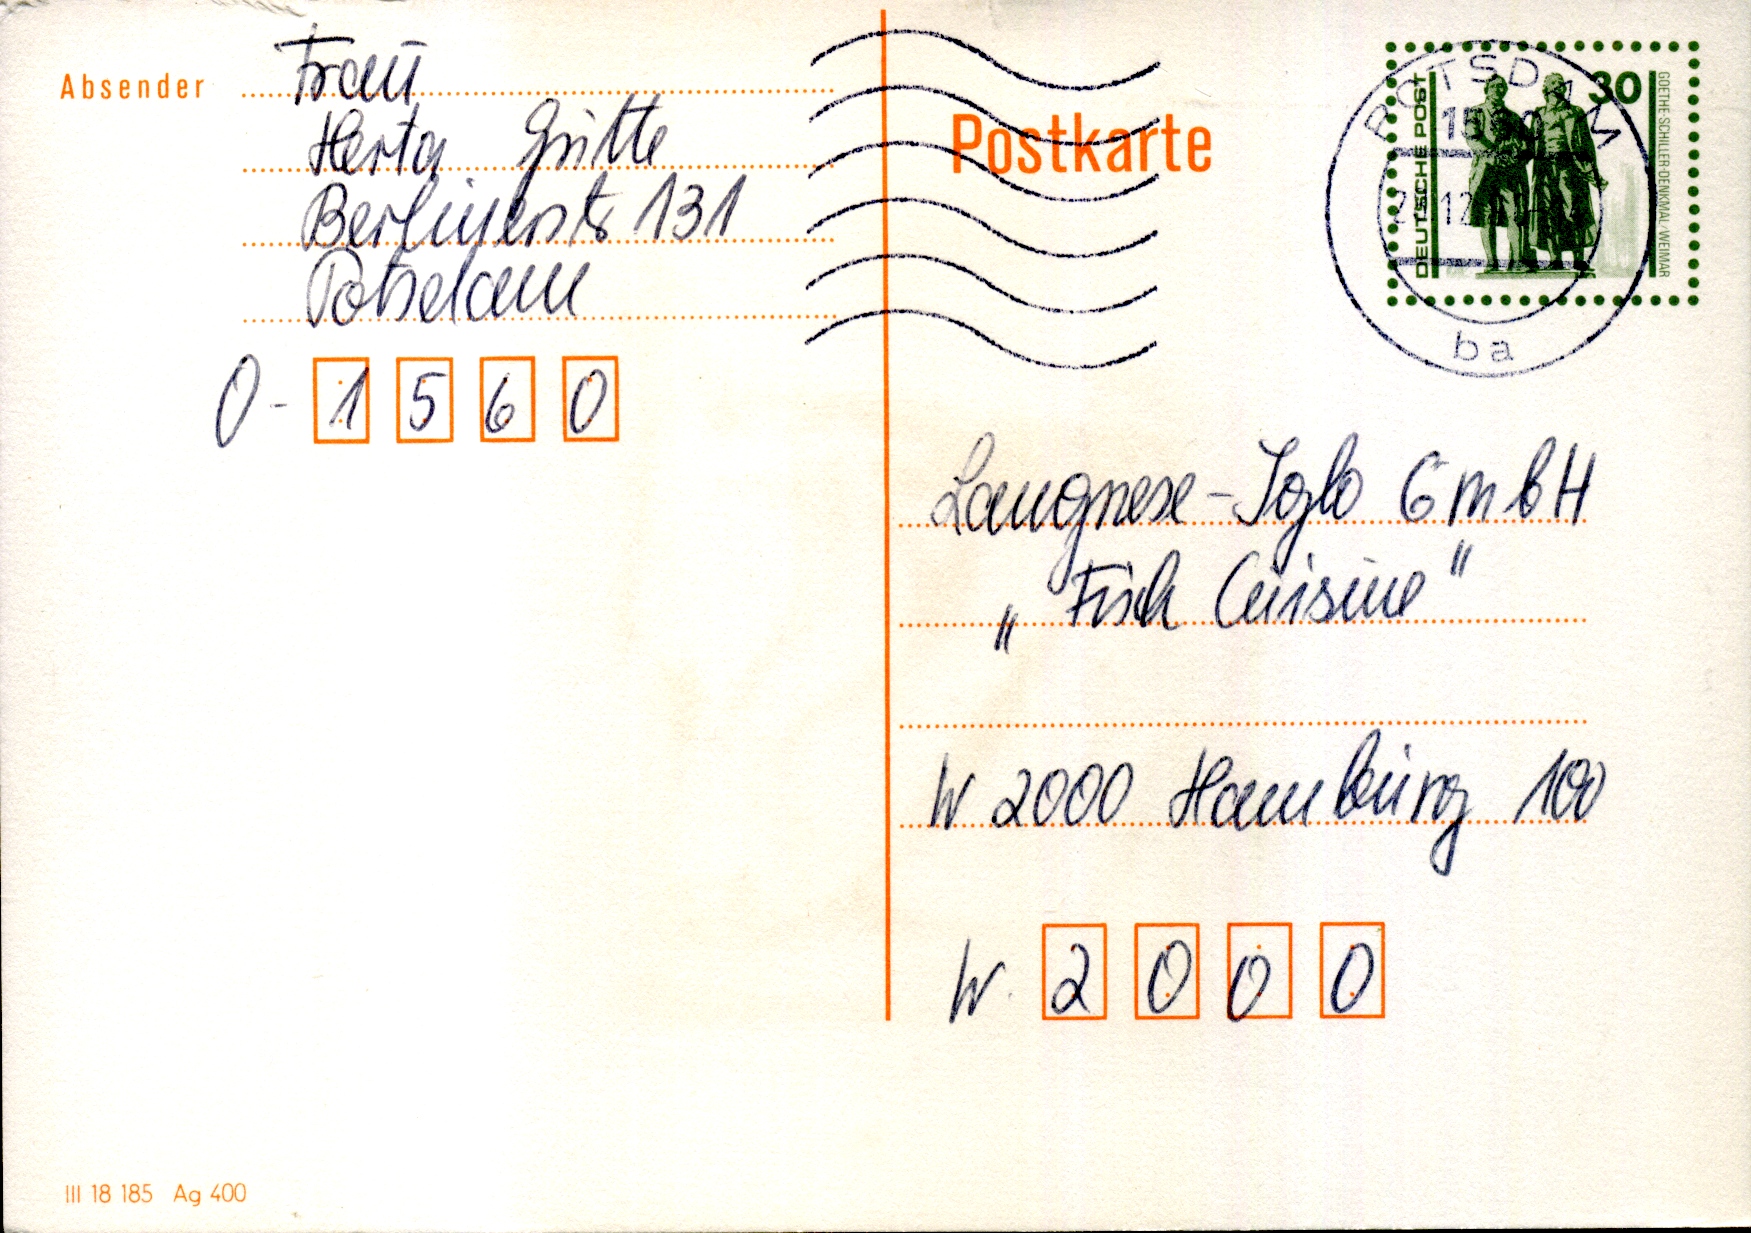 Absender
Frau
Herta Gritte
Berlinerstr 131
Potsdam
O - 1 5 6 0
Postkarte
POTSDAM
ba
DEUTSCHE POST
30
GOETHE-SCHILLER-DENKMAL/WEIMAR
Langnese-Iglo GmbH
„Fisch Cuisine"
W 2000 Hamburg 100
W. 2 0 0 0
III 18 185 Ag 400